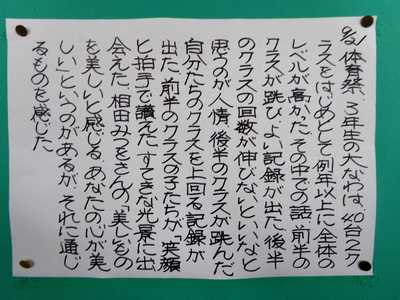 9/ 体育祭、3年生の大なわは、40台2ク
ラスをはじめとして例年以上に全体の
レベルが高かった。その中での話。前半の
クラスが跳び、よい記録が出た。後半
のクラスの回数が伸びないといいなと
思うのが人情。後半のクラスが跳んだ
自分たちのクラスを上回る記録が
出た。前半のクラスの子たちが、「笑顔
と拍手で讃えた。すてきな光景に出
会えた。相田みつをさんの、「美しいもの
を美しいと感じる、あなたの心が美
しい」というのがあるが、それに通じ
るものを感じた。